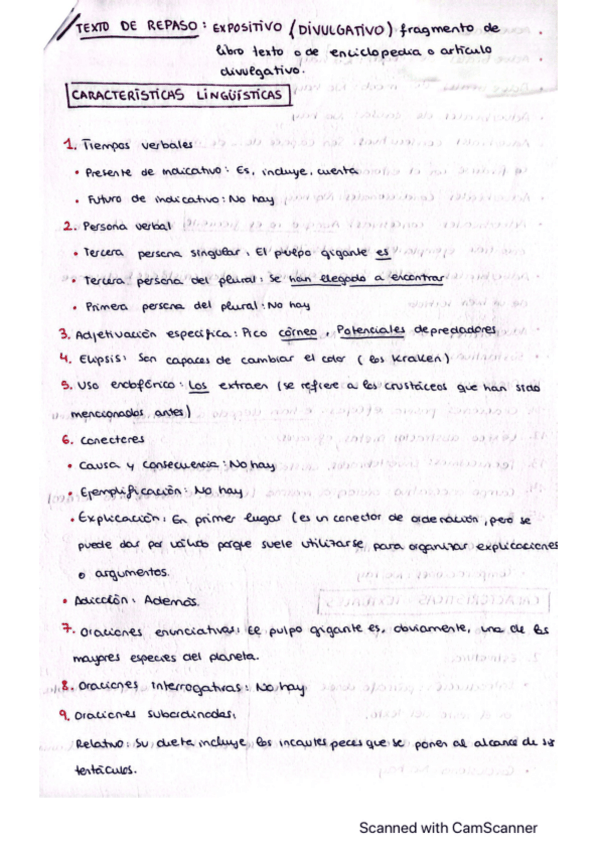 TEXTO DE REPASO: EXPOSITIVO (DIVULGATIVO) fragmento de
libro texto o de enciclopedia o artículo
divulgativo.
CARACTERÍSTICAS LINGÜÍSTICAS
1. Tiempos verbales
• Presente de indicativo: Es, incluye, cuenta
• Futuro de indicativo: No hay
2. Persona verbal
• Tercera persona singular: El pulpo gigante es
• Tercera persona del plural: Se han llegado a encontrar
• Primera persona del plural: No hay
3. Adjetivación específica: Pico córneo, Potenciales depredadores
4. Elipsis: Son capaces de cambiar el color (los Kraken)
5. Uso endofórico: Los extraen (se refiere a los crustáceos que han sido
mencionados antes)
6. Conectores
• Causa y consecuencia: No hay
• Ejemplificación: No hay
• Explicación: En primer lugar (es un conector de ordenación, pero se
puede dar por válido porque suele utilizarse para organizar explicaciones
o argumentos.
• Adicción: Además.
7. Oraciones enunciativas: El pulpo gigante es, obviamente, una de las
mayores especies del planeta.
8. Oraciones interrogativas: No hay
9. Oraciones subordinadas:
Relativo: Su dieta incluye los incautes peces que se ponen al alcance de sus
tentáculos.
Scanned with CamScanner